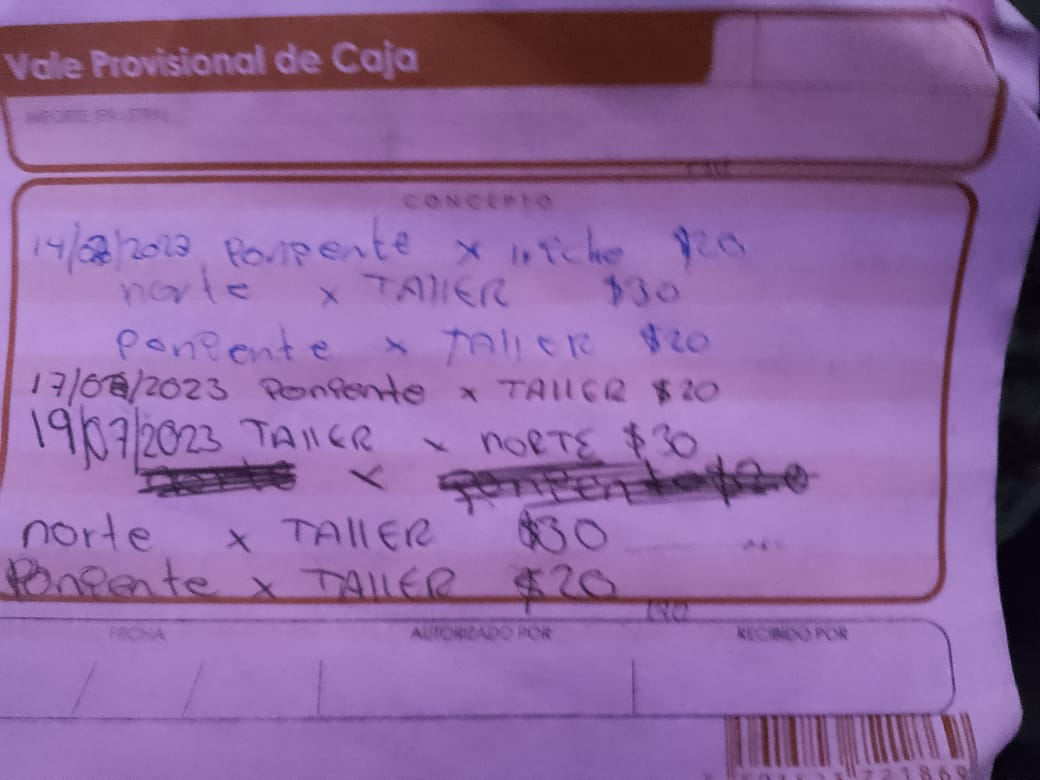 Vale Provisional de Caja
IMPORTE EN LETRA
CONCEPTO
14/08/2023 Ponpente x $20
norte x TAllER $30
ponpente x TAllER $20
17/08/2023 Ponpente x TAllER $20
19/07/2023 TAllER x NORTE $30
x
norte x TAllER $30
Ponpente x TAllER $20
FECHA AUTORIZADO POR RECIBIDO POR